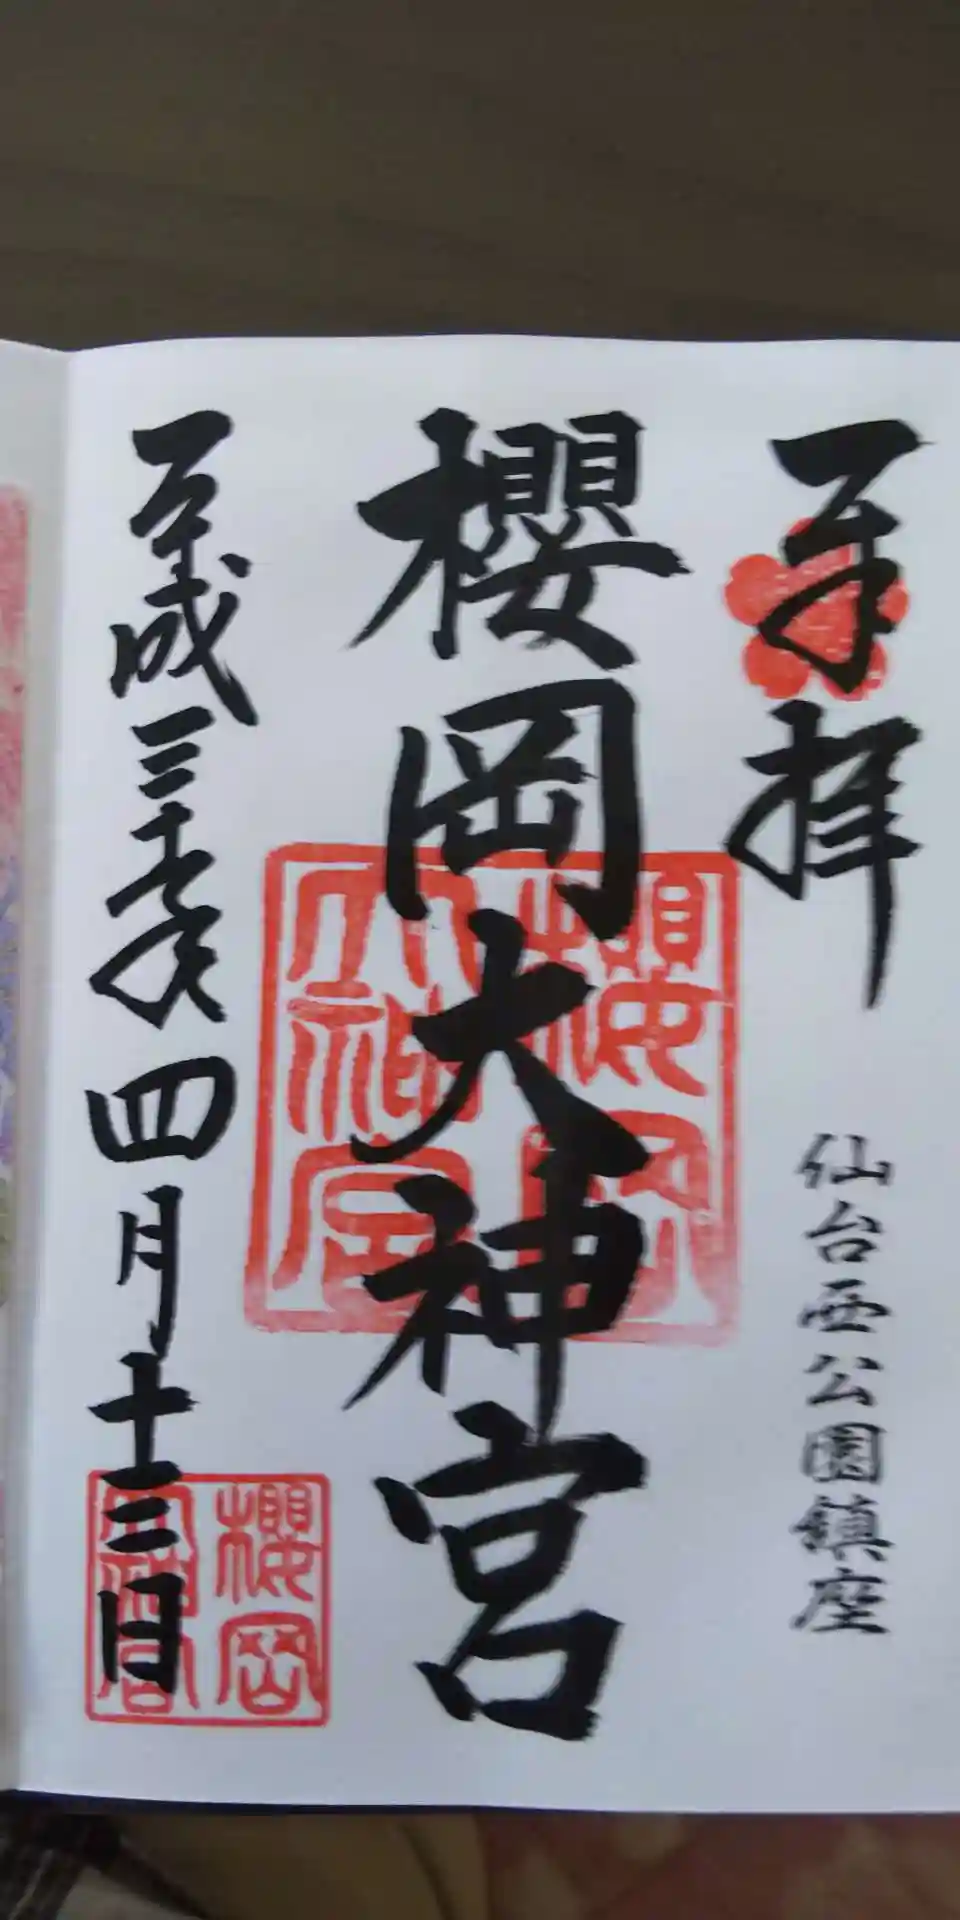 奉拝
仙台西公園鎮座
櫻岡大神宮
櫻岡
大神宮
平成三十年四月十三日
櫻岡
大神宮